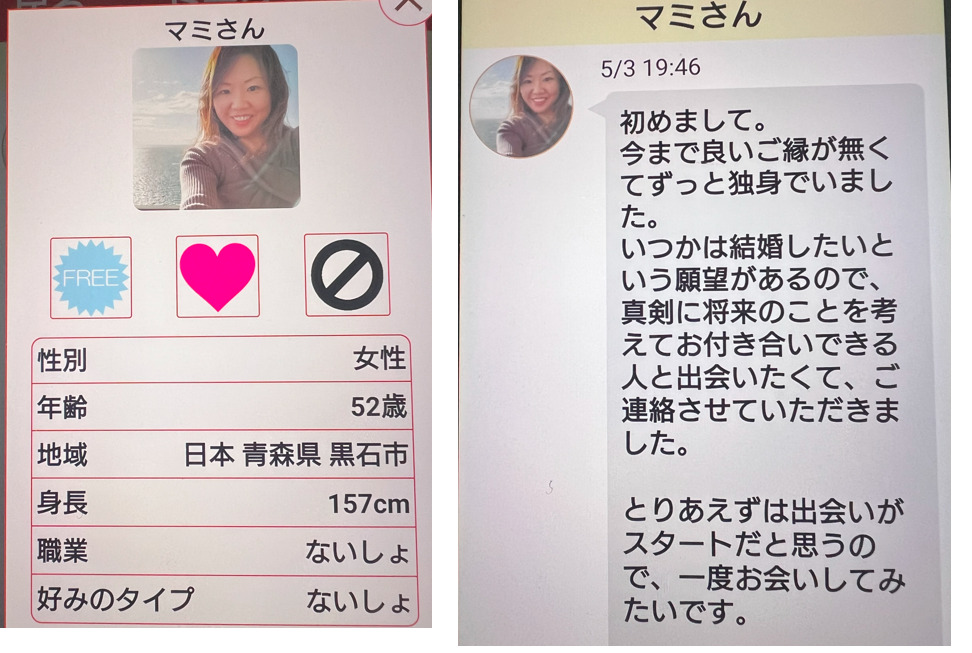 マミさん
FREE
性別 女性
年齢 52歳
地域 日本 青森県 黒石市
身長 157cm
職業 ないしょ
好みのタイプ ないしょ
マミさん
5/3 19:46
初めまして。
今まで良いご縁が無く
てずっと独身でいまし
た。
いつかは結婚したいと
いう願望があるので、
真剣に将来のことを考
えてお付き合いできる
人と出会いたくて、ご
連絡させていただきま
した。
とりあえずは出会いが
スタートだと思うの
で、一度お会いしてみ
たいです。